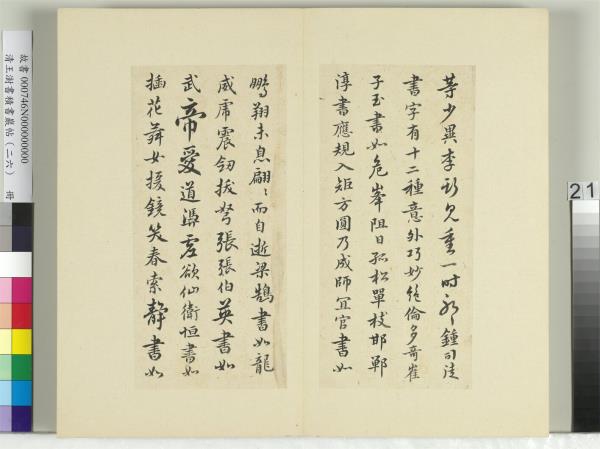 等少異李斯見重一時耶鍾司徒
書字有十二種意外巧妙絕倫多奇崔
子玉書如危峯阻日孤松單枝邯鄲
淳書應規入矩方圓乃成師宜官書如
鵬翔未息翩〻而自逝梁鵠書如龍
威虎震劒拔弩張張伯英書如
武帝愛道憑虛欲仙衛恒書如
插花舞女援鏡笑春索靜書如
故書000746N000000000
清王澍書積書巖帖（二六） 冊
21